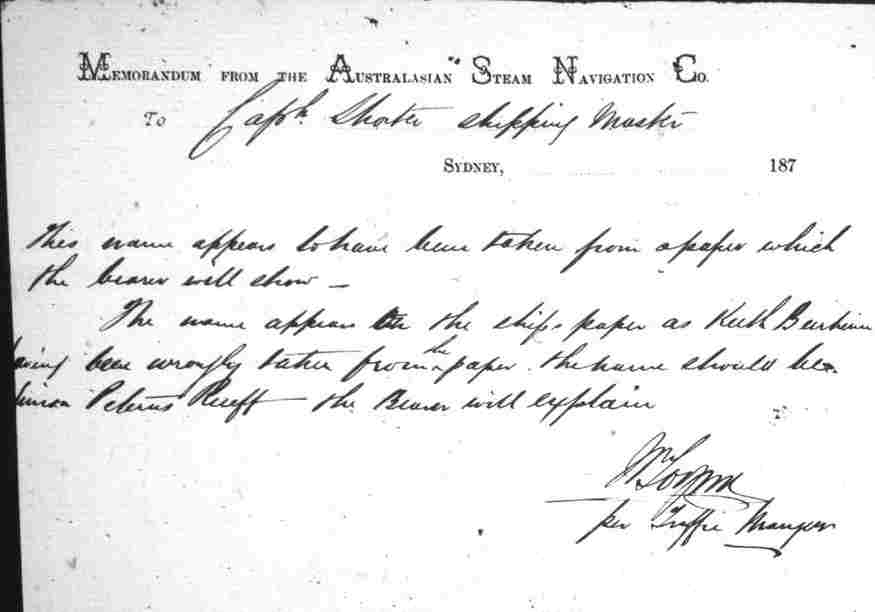 MEMORANDUM FROM THE AUSTRALASIAN STEAM NAVIGATION CO.
To Capt. Shorter shipping Master
SYDNEY, 187
This name appears to have been taken from a paper which
the bearer will show —
The name appears on the ships paper as
having been wrongly taken from the paper. the name should be
Peterus Rueff — the Bearer will explain
per Traffic Manager